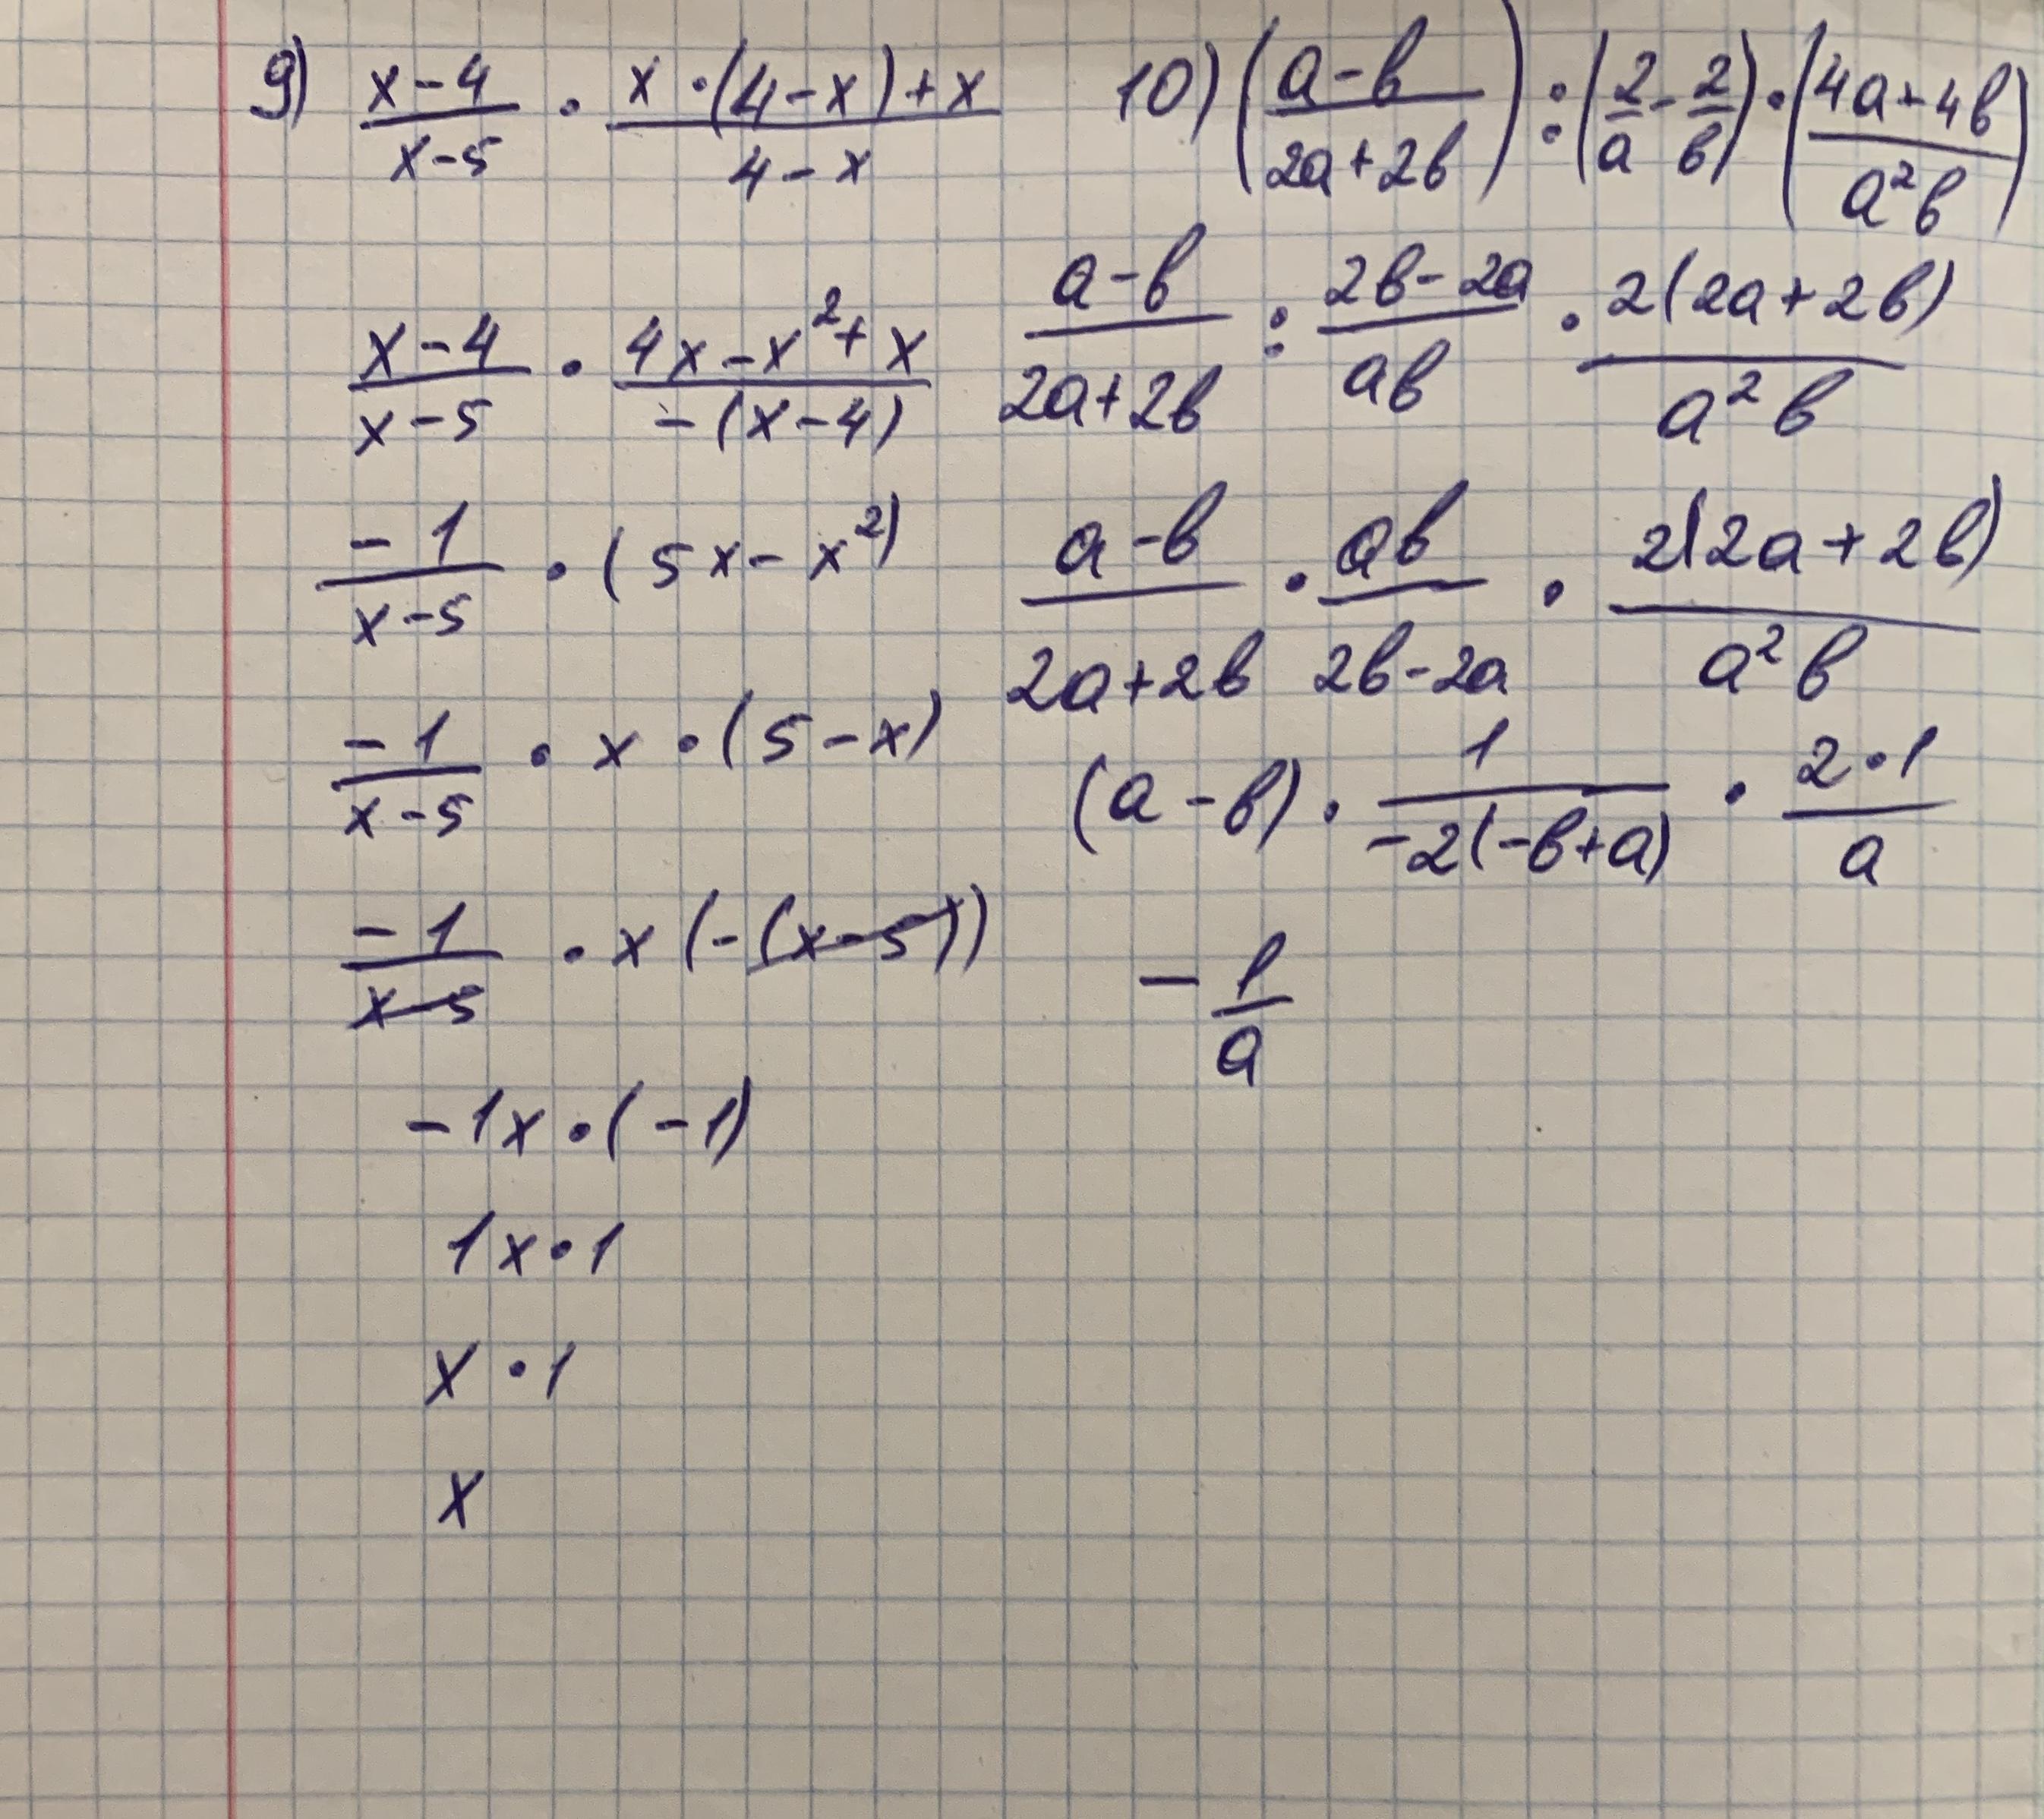 9) (x-4)/(x-5) · (x·(4-x)+x)/(4-x)
(x-4)/(x-5) · (4x-x²+x)/(-(x-4))
-1/(x-5) · (5x-x²)
-1/(x-5) · x · (5-x)
-1/(x-5) · x(-(x-5))
-1x·(-1)
1x·1
x·1
x
10) ((a-b)/(2a+2b)) : (2/a - 2/b) · ((4a+4b)/(a²b))
(a-b)/(2a+2b) : (2b-2a)/(ab) · 2(2a+2b)/(a²b)
(a-b)/(2a+2b) · ab/(2b-2a) · 2(2a+2b)/(a²b)
(a-b) · 1/(-2(-b+a)) · (2·1)/a
-1/a